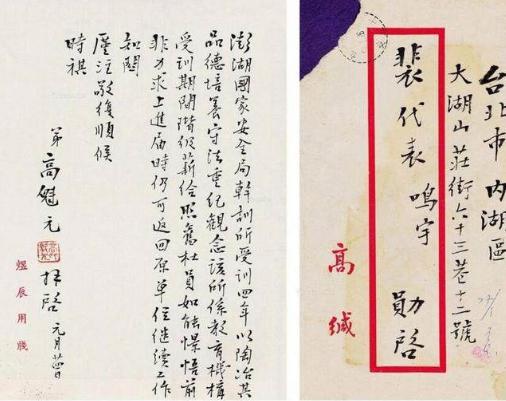 澎湖國家安全局幹訓所受訓四年以陶冶其
品德培養守法重紀觀念該所係教育機構
受訓期間階級薪給照舊杜員如能憬悟前
非力求上進屆時仍可返回原單位繼續工作
知關
廑注敬復順候
時祺
弟高魁元 拜啟 元月廿四日
煜辰用牋
台北市內湖區
大湖山莊街六十三巷十三號
裴代表鳴宇 勛啟
高緘